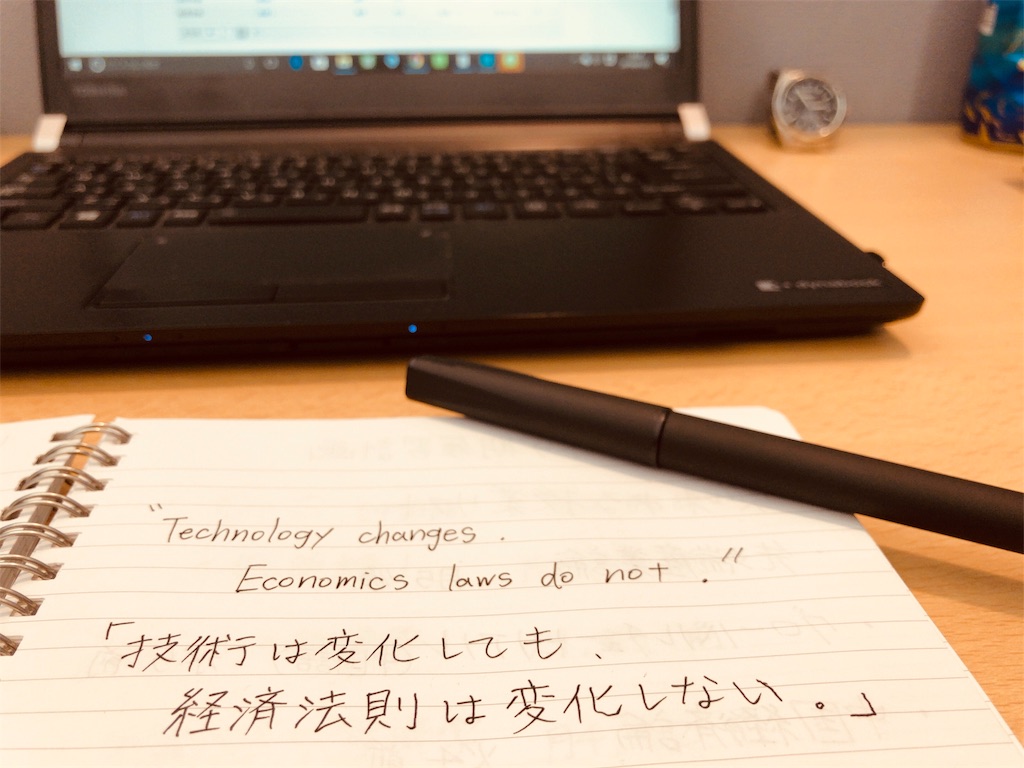 dynabook
"Technology changes.
Economics laws do not."
「技術は変化しても、
経済法則は変化しない。」